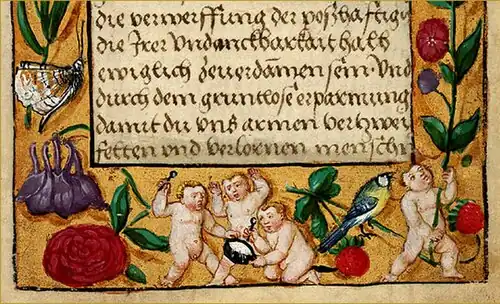 die verwerffung der poßhafftigu
die Irer Undanckharkait halb
ewiglich zeuerdamen sein. Und
durch dem gruntlose erparmung
damit du uns armen verzwei
felten und verlornen menschn